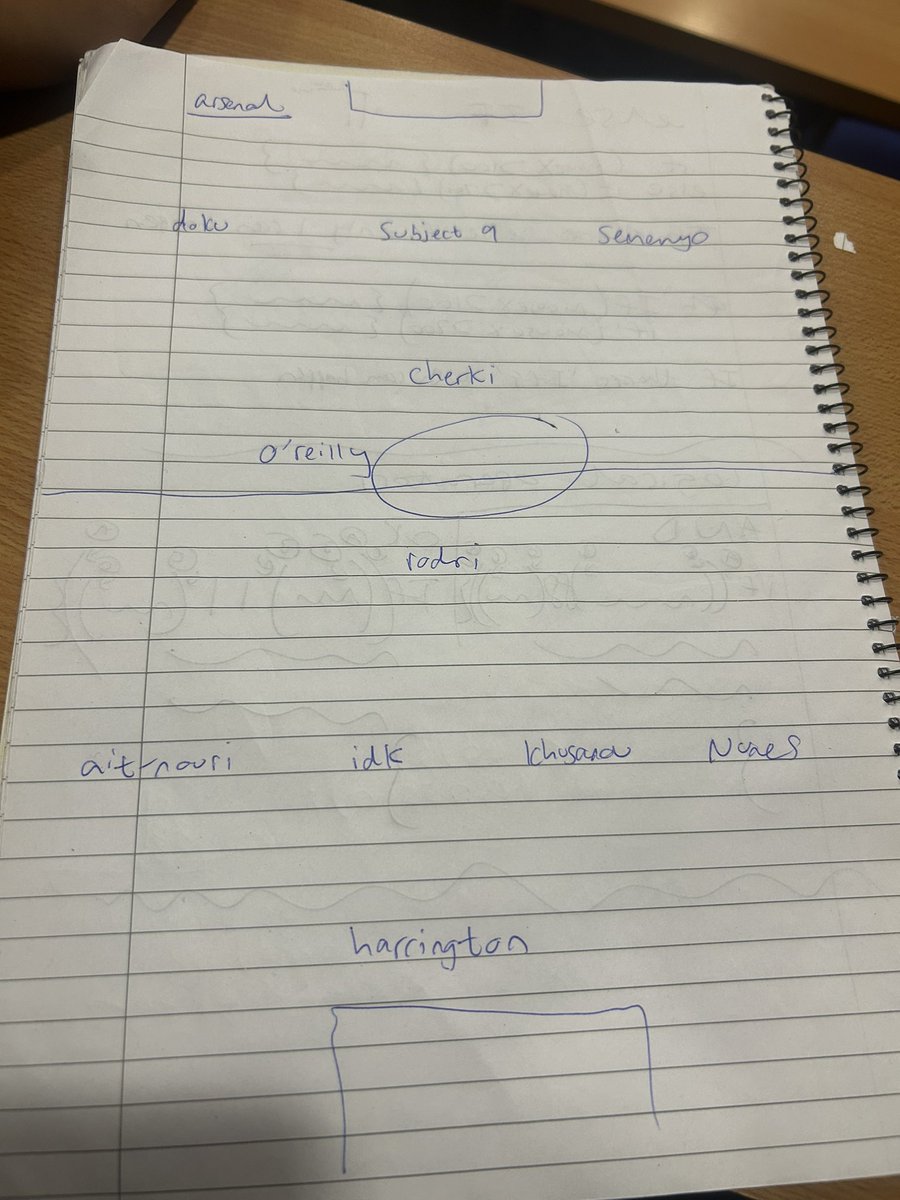 arsenal
doku Subject 9 Semenyo
Cherki
O'reilly
rodri
ait-nouri idk Khusanov Nunes
harrington